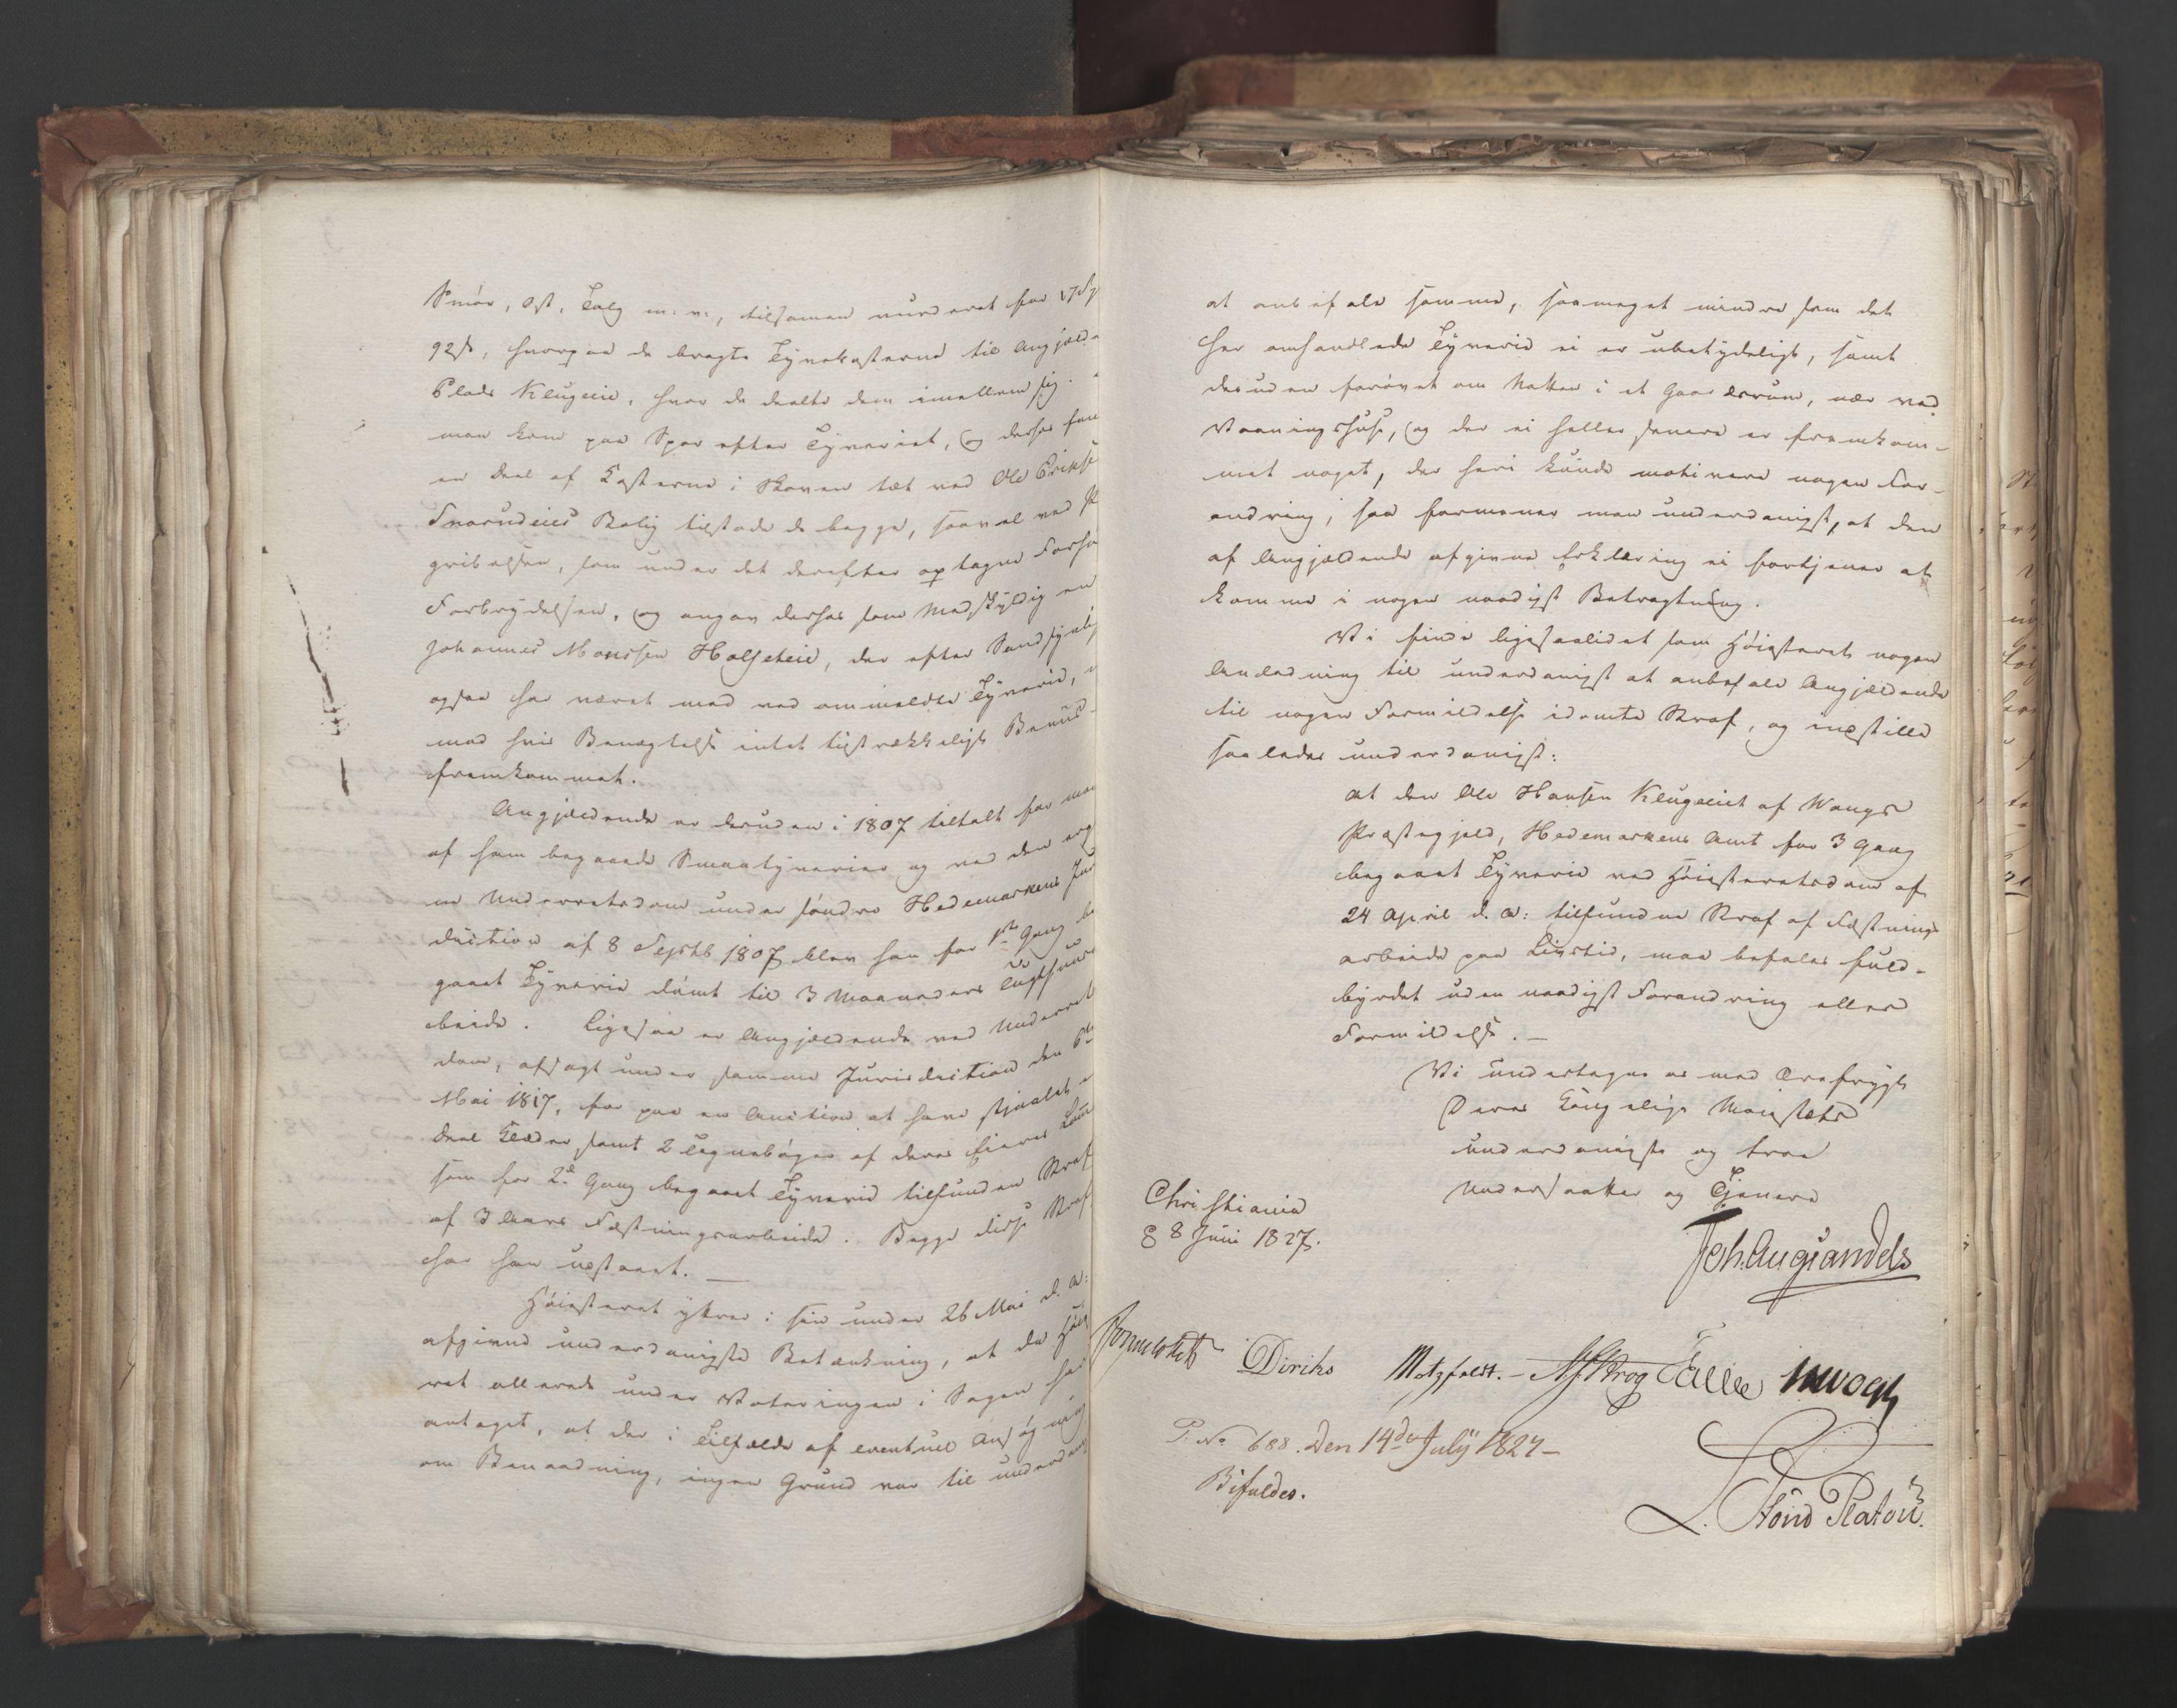 Smör, Ost, Talg m: v:, tilsamen vurderet for 17 Sp
92 s, hvorpaa de bragte Tyvekosterne til Angjæld
Plads Klugeiie, hvor de deelte dem imellem sig.
man kom paa Spor efter Tyveriet, og derhos fan
en Deel af Kosterne i Skoven tæt ved Ole Erikse
Bolig tilstode de begge, saavel ved
gribelsen, som under det derefter optagne Forhø
Forbrydelsen, og angav derhos som Medskyldig en
Johannes Monssen Holseteie, der efter Sandsynlig
ogsaa har været med ved ommeldte Tyverie,
mod hvis Benægtelse intet tilstrækkeligt Beviis
fremkommet.
Angjældende er desuden i 1807 tiltalt for
af ham begaaede Smaatyverier og ved den erg
ne Underretsdom under söndre Hedemarkens Jur
diction af 8 Septb 1807 blev han for 1ste Gang be
gaaet Tyverie dömt til 3 Maaneders Tugthuusar
beide. Ligesaa er Angjældende ved Underrets
dom, afsagt under samme Jurisdiction den 6te
Mai 1817, for paa en Auction at have stjaalet
Deel Klæder samt 2 Tegneböger af deres Eieres Lom
som for 2d Gang begaaet Tyverie tilfunden Straf
af 3 Aars Fæstningsarbeide. Begge disse Straf
har han udstaaet. —
Höiesteret yttrer i sin under 26 Mai d. A:
afgivne underdanigste Betænkning, at da Höie
ret allerede under Voteringen i Sagen har
antaget, at der i Tilfælde af eventuel Ansögning
om Benaadning, ingen Grund var til underdan
at anbefale samme, saameget mindre som det
her omhandlede Tyverie ei er ubetydeligt, samt
desuden forövet om Natten i et Gaardsrum, nær ved
Vaaningshuse, og der ei heller senere er fremkom-
met noget, der heri kunde motivere nogen For-
andring; saa formener man underdanigst, at den
af Angjældende afgivne Erklæring ei fortjener at
komme i nogen naadigst Betragtning.
Vi finde ligesaalidet som Höiesteret nogen
Anledning til underdanigst at anbefale Angjældende
til nogen Formildelse i idömte Straf, og indstille
saaledes underdanigst:
at den Ole Hansen Klugeiet af Wangs
Præstegjeld, Hedemarkens Amt for 3 Gang
begaaet Tyverie ved Höiesteretsdom af
24 April d. A: tilfundne Straf af Fæstnings
arbeide paa Livstid, maa befales fuld-
byrdet uden naadigst Forandring eller
Formildelse. —
Vi undertegne os med Ærefrygt
Deres Kongelige Majestæts
underdanigste og troe
Undersaatter og Tjenere
Christiania
8 Juni 1827.
Joh: Aug: Sandels
Sommerhielm
Diriks Motzfeldt. — Krog Fasting JHVogt
P. No 688. Den 14de July 1827 —
Bifaldes.
L. Stoud Platou